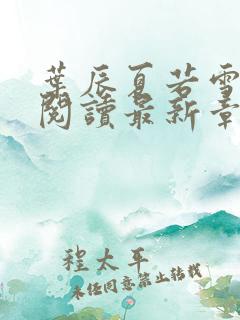 葉辰夏若雪
閱讀最新章
程太平
未經同意禁止轉載